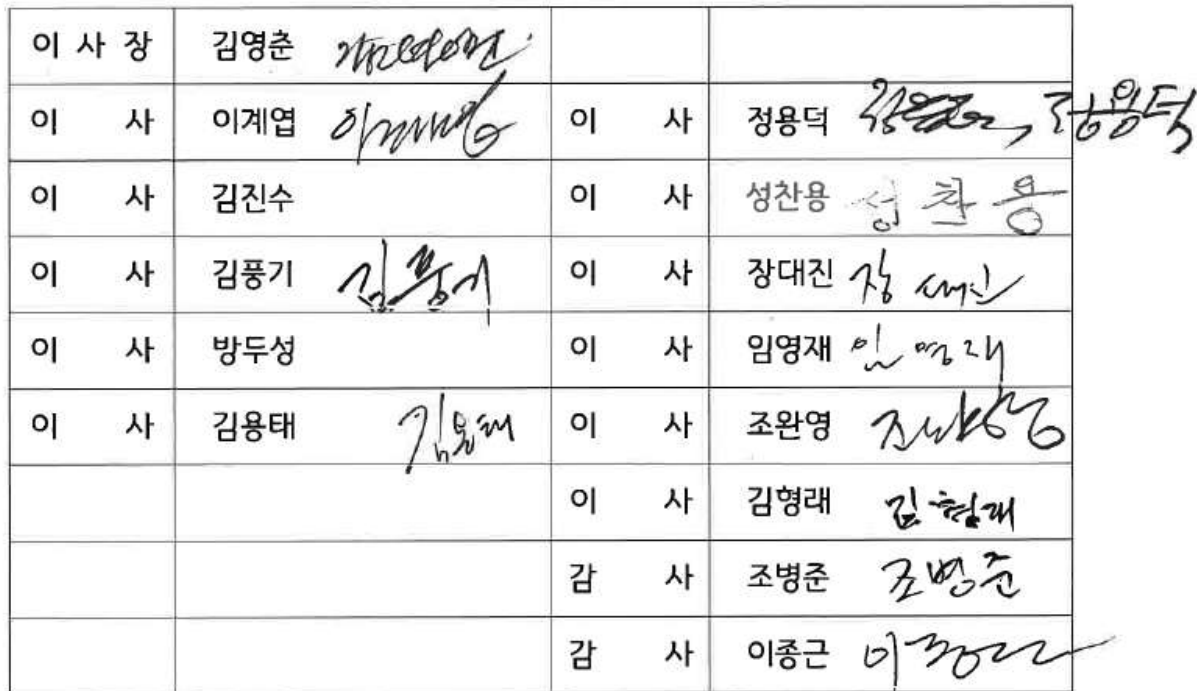 이 사 장 김영춘 김영춘
이 사 이계엽 이계엽 이 사 정용덕 정용덕
이 사 김진수 이 사 성찬용 성찬용
이 사 김풍기 김풍기 이 사 장대진 장대진
이 사 방두성 이 사 임영재 임영재
이 사 김용태 김용태 이 사 조완영 조완영
이 사 김형래 김형래
감 사 조병준 조병준
감 사 이종근 이종근